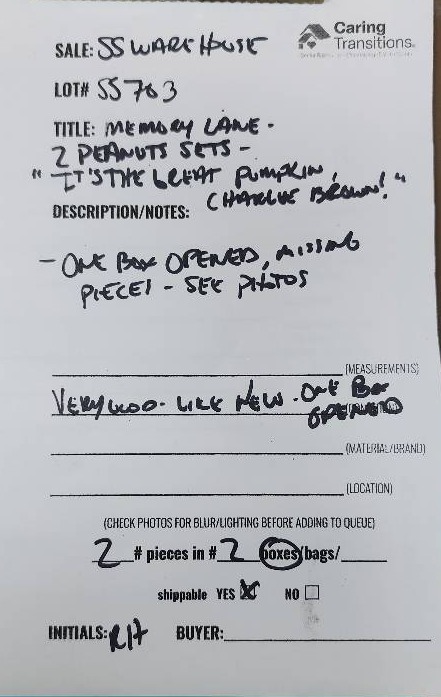 Caring
Transitions
SALE: SS WAREHOUSE
LOT# SS763
TITLE: MEMORY LANE -
2 PEANUTS SETS -
"IT'S THE GREAT PUMPKIN,
CHARLIE BROWN!"
DESCRIPTION/NOTES:
- ONE BOX OPENED, MISSING
PIECES - SEE PHOTOS
(MEASUREMENTS)
VERY GOOD - LIKE NEW - ONE BOX
OPENED
(MATERIAL/BRAND)
(LOCATION)
(CHECK PHOTOS FOR BLUR/LIGHTING BEFORE ADDING TO QUEUE)
2 # pieces in # 2 boxes/bags/
shippable YES NO
INITIALS: RH BUYER: